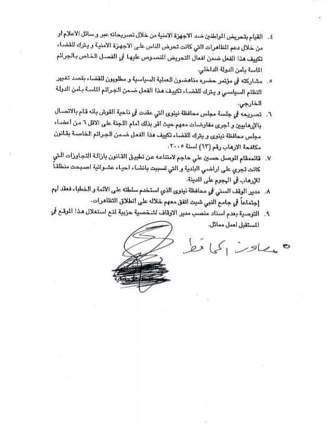 ٤. القيام بتحريض المواطنين ضد الاجهزة الامنية من خلال تصريحاته عبر وسائل الاعلام او
من خلال دعم المظاهرات التي كانت تحرض الناس على الاجهزة الامنية و يترك للقضاء
تكييف هذا الفعل ضمن افعال التحريض المنصوص عليها في الفصل الخاص بالجرائم
الماسة بأمن الدولة الداخلي.
٥. مشاركته في مؤتمر حضره مناهضون للعملية السياسية و مطلوبون للقضاء بقصد تغيير
النظام السياسي و يترك للقضاء تكييف هذا الفعل ضمن الجرائم الماسة بأمن الدولة
الخارجي.
٦. تصريحه في جلسة مجلس محافظة نينوى التي عقدت في ناحية القوش بانه قام بالاتصال
بالارهابيين و اجرى مفاوضات معهم حيث أقر بذلك امام اللجنة على الاقل ٦ من اعضاء
مجلس محافظة نينوى و يترك للقضاء تكييف هذا الفعل ضمن الجرائم الخاصة بقانون
مكافحة الارهاب رقم (١٣) لسنة ٢٠٠٥.
٧. قائممقام الموصل حسين علي حاجم لامتناعه عن تطبيق القانون بازالة التجاوزات التي
كانت تجري على اراضي البلدية و التي تسببت بانشاء احياء عشوائية اصبحت منطلقاً
للإرهاب في الهجوم على المدينة.
٨. مدير الوقف السني في محافظة نينوى الذي استخدم سلطاته على الأئمة و الخطباء، فعقد لهم
إجتماعاً في جامع النبي شيت اتفق معهم خلاله على انطلاق التظاهرات.
٩. التوصية بعدم اسناد منصب مدير الاوقاف لشخصية حزبية لمنع استغلال هذا الموقع في
المستقبل لعمل مماثل.
معاون المحافظ